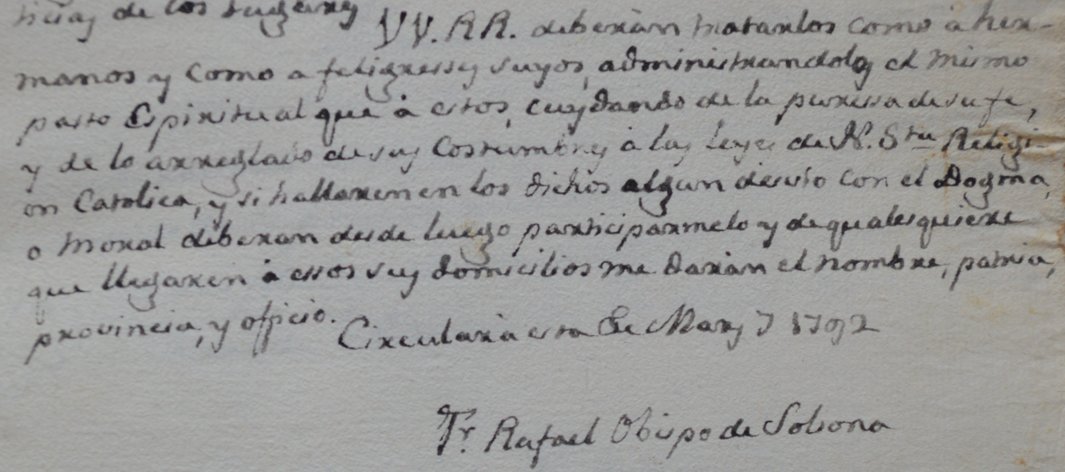 de los
VV. RR. deberàn tratarlos como à her-
manos y como a feligresses suyos, administrandolos el mismo
pasto Espiritual que à estos, cuydando de la puressa de su fe,
y de lo arreglado de sus Costumbres à las Leyes de N. Sta Religi-
on Catolica, y si hallaren en los dichos algun desvio con el Dogma,
o moral deberan desde luego participarmelo y de qualesquiere
que llegaren à essos sus domicilios me daràn el nombre, patria,
provincia, y officio.
Circularà esta de 1792
Fr. Rafael Obispo de Solsona